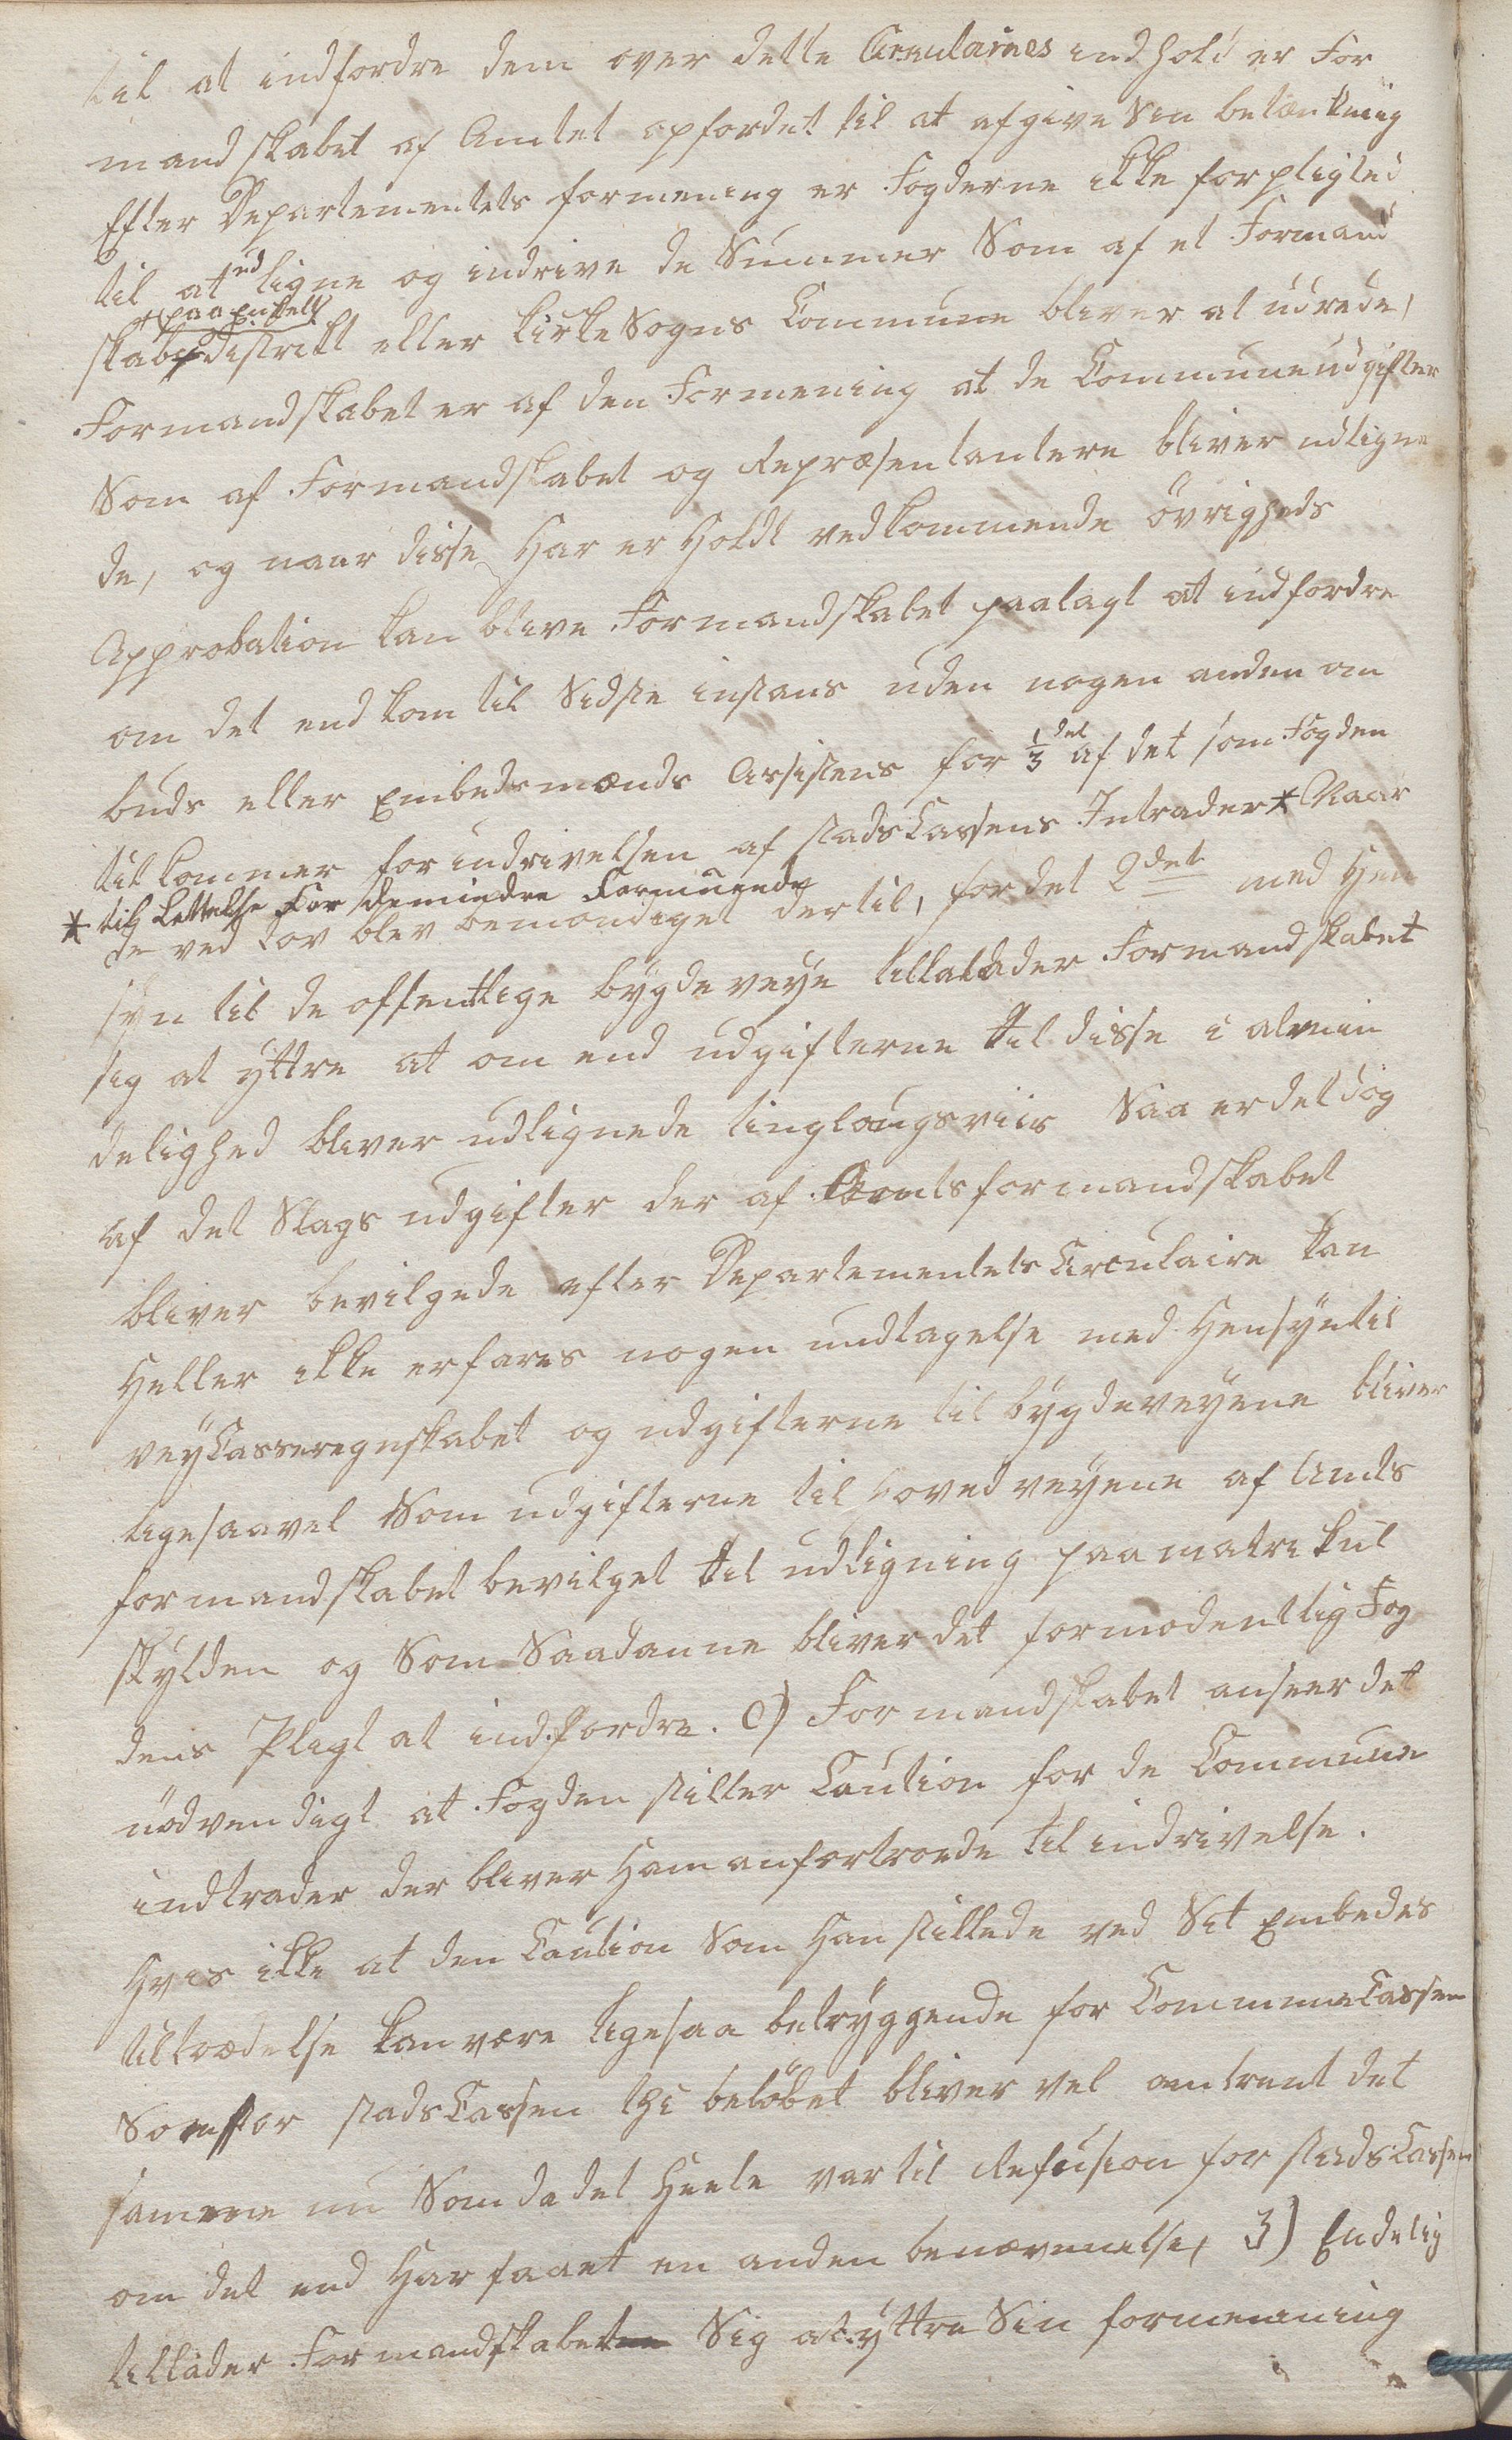 til at indfordre dem over dette Circulaires indhold er For
mandskabet af Amtet opfordret til at afgive Sin betænkning
Efter Departementets formening er Fogderne ikke forpligted
til at udligne og indrive de Summer Som af et Formand
+ paa Enkelt
skabsdistrikt eller KirkeSogns Commune bliver at udrede,
Formandskabet er af den Formening at de Communeudgifter
Som af Formandskabet og Repræsentantere bliver udligne
de, og naar disse Har er Holdt vedkommende övrigheds
Approbation kan blive Formandskabet paalagt at indfordre
om det end kom til Sidste instans uden nogen anden om
buds eller Embedsmænds Assistens for 1/3 del af det som Fogden
tilkommer for indrivelsen af stadsCassens Intrader * Naar
* til Lettelse for de mindre Formuende
de ved Lov blev bemöndiget dertil, for det 2det med Hen
syn til de offentlige bygdeveye tillader Formandskabet
sig at yttre at om end udgifterne til disse i almin
delighed bliver udlignede tinglaugsviis Saa er det dog
af det Slags udgifter der af Amtsformandskabet
bliver bevilgede efter Departementets Circulaire kan
Heller ikke erfares nogen undtagelse med Hensyn til
veyCasseregnskabet og udgifterne til bygdeveyene bliver
ligesaavel Som udgifterne til hovedveyene af Amts
formandskabet bevilget til udligning paa matrikul
skylden og Som Saadanne bliver det formodentlig Fog
dens Pligt at indfordre. C) Formandskabet anseer det
nödvendigt at Fogden stiller Caution for de Commune
indtrader der bliver Ham anfortroede til indrivelse.
Hvis ikke at den Caution Som Han stillede ved Sit Embedes
tiltrædelse kan være ligesaa betryggende for CommuneCassen
Som for stadsCassen thi belöbet bliver vel omtrent det
samme nu Som da det Heele var til Refusion for stadsCassen
om det end Har faaet en anden benævnelse, 3) Endelig
tillader Formandskabet Sig at yttre Sin formenning